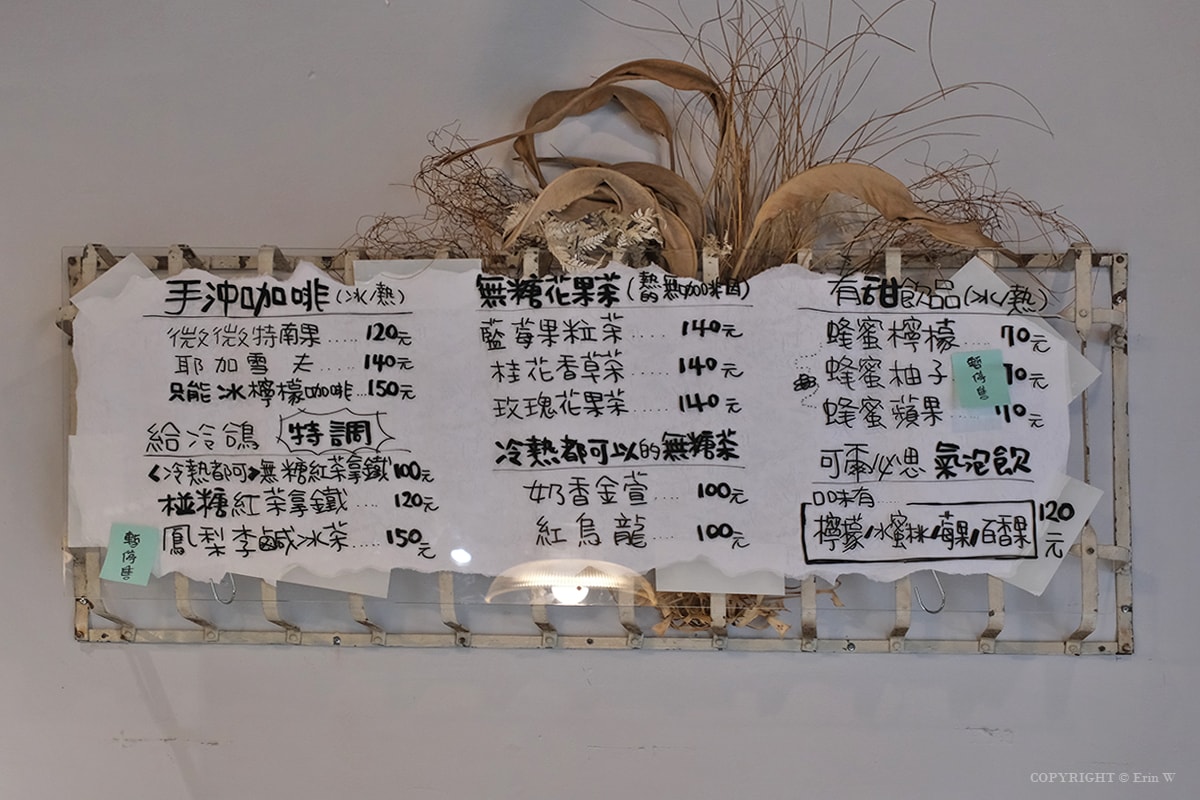 手沖咖啡(冰/熱)
微微特南果.....120元
耶加雪夫 140元
只能冰檸檬咖啡...150元
給冷鴿 特調
<冷熱都可>無糖紅茶拿鐵100元
椪糖紅茶拿鐵...120元
鳳梨李鹹冰茶....150元
暫停售
無糖花果茶(熱的無咖啡因)
藍莓果粒茶.....140元
桂花香草茶.....140元
玫瑰花果茶.....140元
冷熱都可以的無糖茶
奶香金萱....100元
紅烏龍....100元
有甜飲品(冰/熱)
蜂蜜檸檬....70元
蜂蜜柚子 70元
暫停售
蜂蜜蘋果.....70元
可爾必思氣泡飲
口味有....
檸檬/水蜜桃/莓果/百香果 120元
COPYRIGHT © Erin W